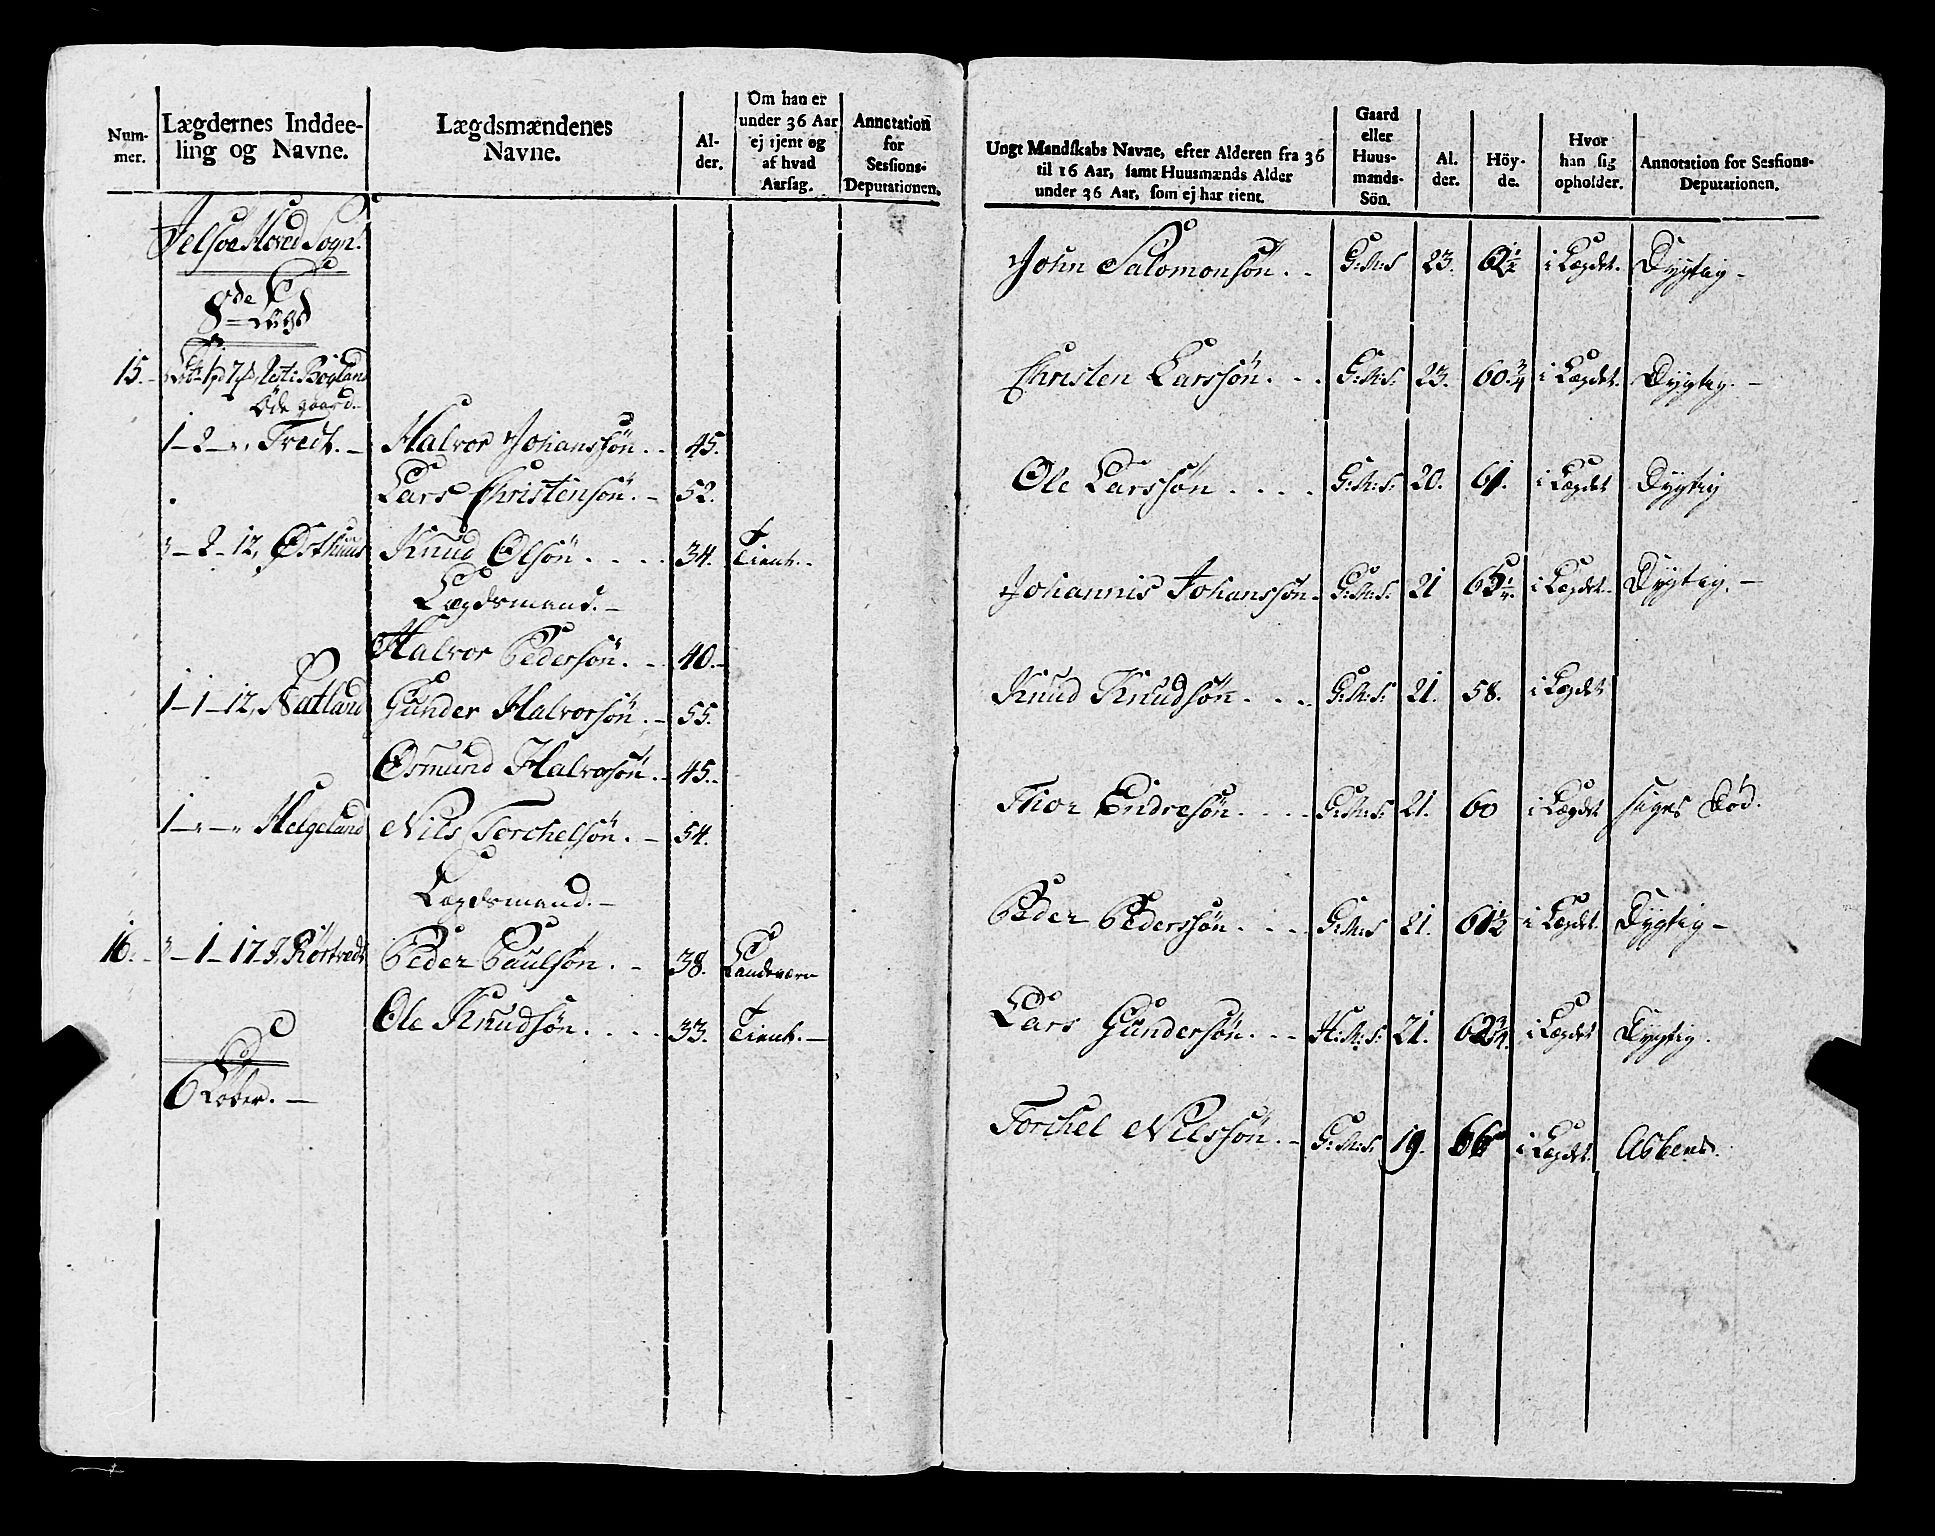 Num-
mer.
Lægdernes Inddee-
ling og Navne.
Lægdsmændenes
Navne.
Al-
der.
Om han er
under 36 Aar
ej tjent og
af hvad
Aarsag.
Annotation
for
Sessions-
Deputationen.
Jelsoe Hoved Sogn.
8de Lægd
15. Bogland
Öde gaard.
1-2-"- Tredt. - Halvor Johanssön. - 45.
Lars Christensön. - 52.
"-2-12, Østhuus Knud Olsön. . . . 34. Tient.
Lægdsmand. -
Halvor Pedersön. - 40.-
1-1-12, Natland Gunder Halvorsön. - 55.
Osmund Halvorsön. - 45.-
1-"-" Helgeland Nils Torchelsön. - 54.
Lægdsmand. -
16. - "-1-17- Rörtvedt Peder Paulsön. - 38. Landeværn
Ole Knudsön. . . . 33. Tient. -
6 Kober. -
Ungt Mandskabs Navne, efter Alderen fra 36
til 16 Aar, samt Huusmænds Alder
under 36 Aar, som ej har tient.
Gaard
eller
Huus-
mands-
Sön.
Al.
der.
Höy-
de.
Hvor
han sig
opholder.
Annotation for Sessions-
Deputationen.
John Salomonsön. . G:M:S 23. 61½ i Lægdet. Dygtig -
Christen Larssön. . . G:M:S: 23. 60.¾ i Lægdet. Dygtig. -
Ole Larssön . . . . G:M:S: 20. 61. i Lægdet Dygtig
Johannis Johanssön - G:M:S: 21 65¼. i Lægdet. Dygtig. -
Knud Knudsön. . . . G:M:S: 21. 58. i Lægdet
Thor Endresön. . . . G:M:S: 21. 60 i Lægdet siges Död.
Peder Pederssön. . . . G:M:S 21. 61½ i Lægdet. Dygtig -
Lars Gundersön. . . H:M:S: 21. 62¾. i Lægdet Dygtig.
Torchel Nilssön. - G:M:S. 19. 66 i Lægdet. Absens.